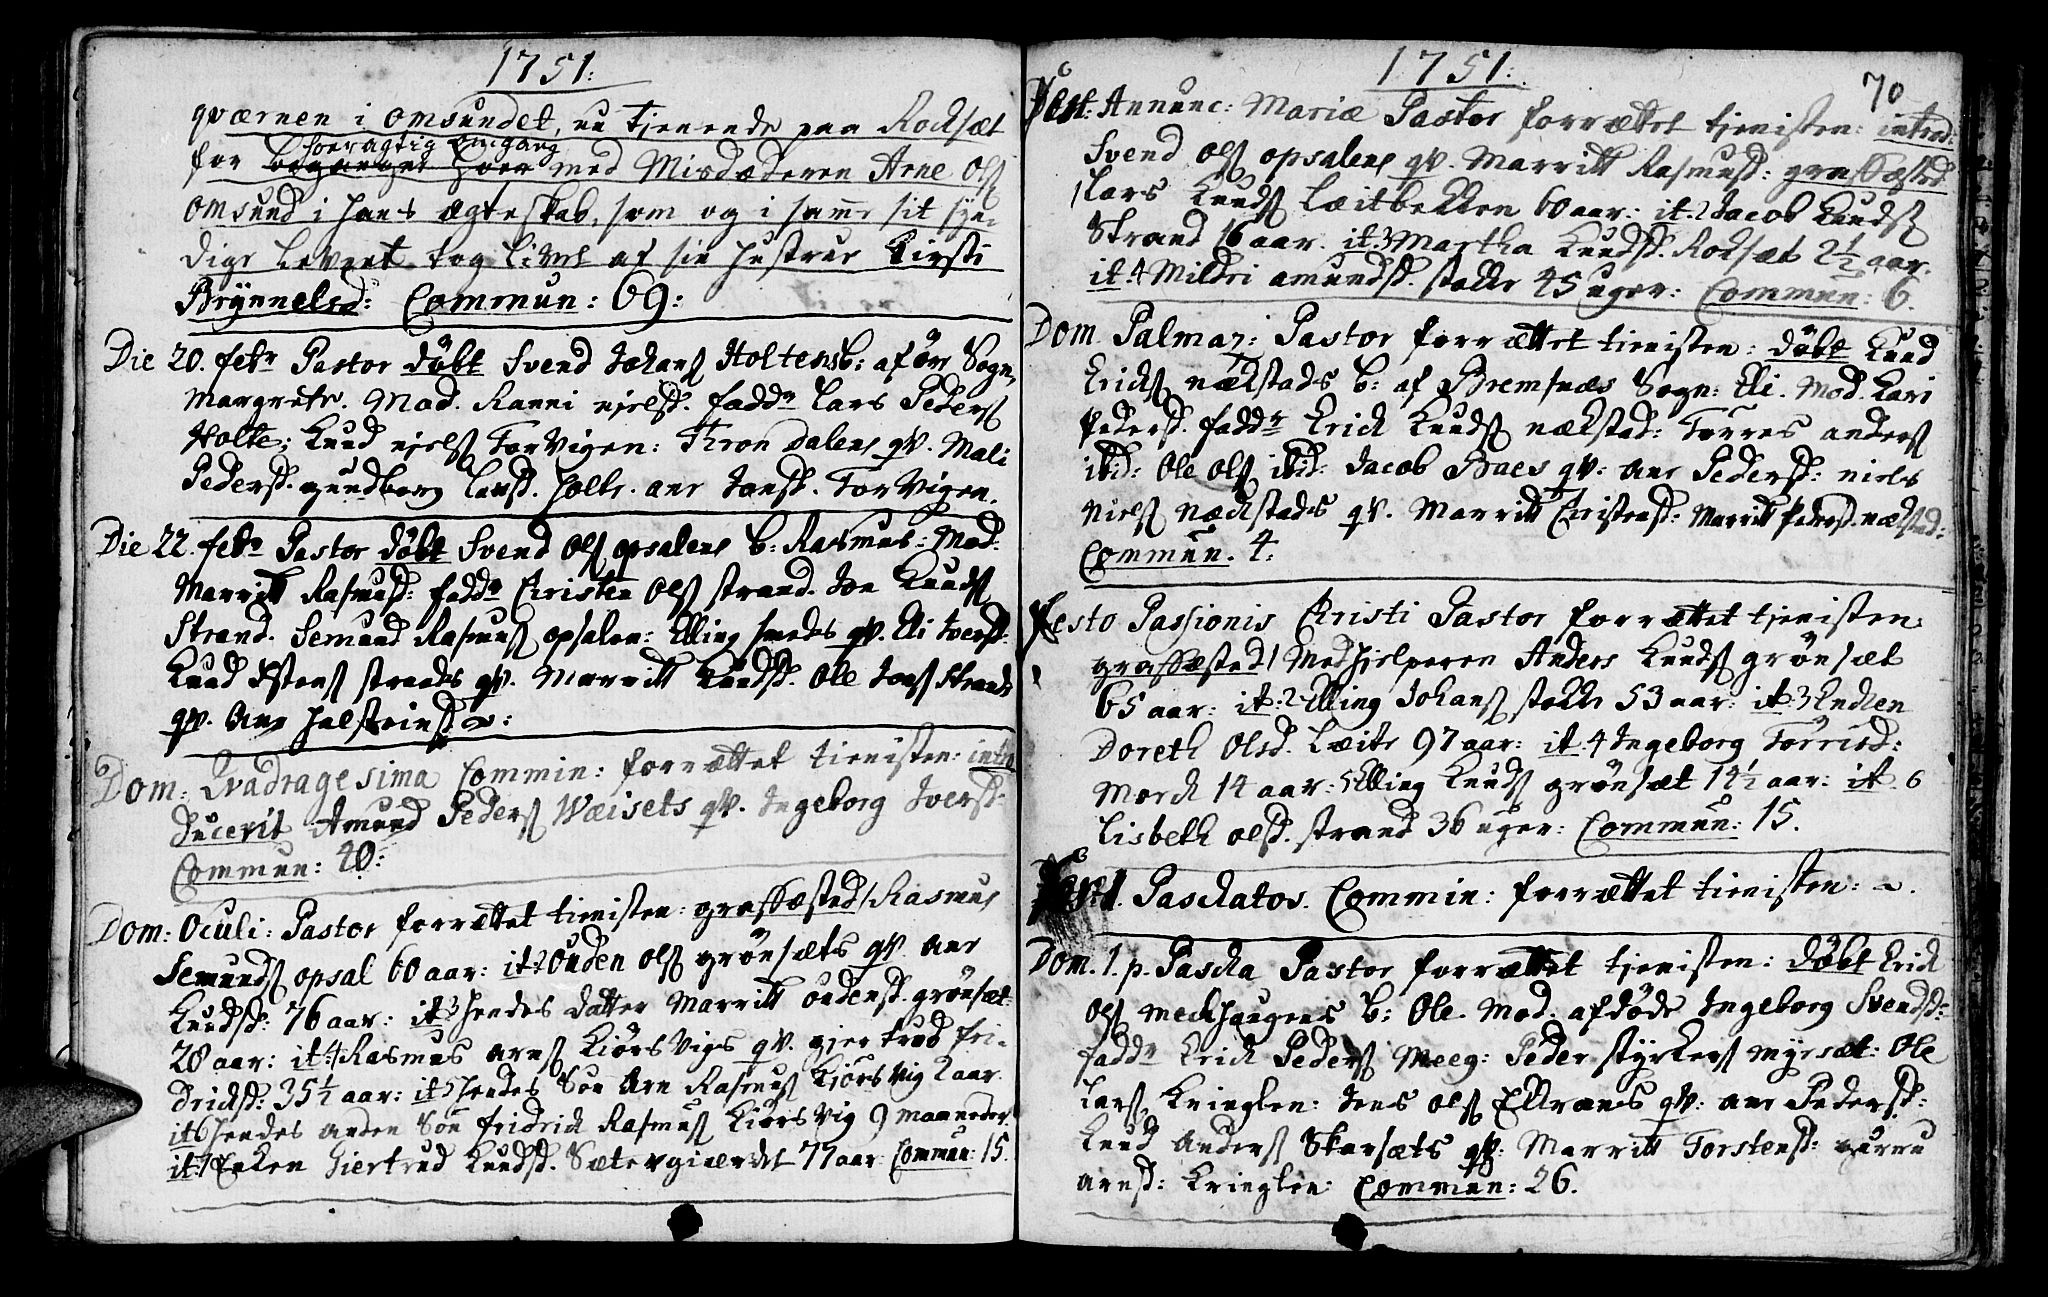 1751:
qværnen i omsundet, nu tjenende paa Rocksæt
for foeragtig omgang med Misdæderen Arne Ols
omsund i hans ægteskab, som og i samme sit syn-
dige levnet tog livet af sin hustrue Kirsti
Brynnelsd: Commun: 69:
Die 20. febr Pastor döbt Svend Johans Holtens b: af ör Sogn,
Margrete. Mod. Ranni njelsd. fadd. Lars Peders
Holte; Knud njels Torvigen: Thron dalens qv. Mali
Pedersd. gundborg larsd. holte. ane Jonsd. Torvigen.
Die 22. febr Pastor döbt Svend Ols opsalens b: Rasmus: Mod:
Marritt Rasmusd: fadd. Christen Ols strand. Jon Knuds
Strand. Semund Rasmus opsalen: Elling smeds qv. Eli Iversd:
Knud Estens strands qv. Marritt Knudsd. Ole Jons Strands
qv. Ane Halsteinsd:
Dom: Qvadragesima Commin: forrættet tienisten: intro
ducerit Amund Peders Wæisets qv. Ingeborg Iversd:
Commun: 40:
Dom: Oculi: Pastor forrættet tienisten: græssæsted 1 Rasmus
Semunds opsal 60 aar: it: 2 Ouden Ols grönsæts qv. Ane
Knudsd: 76 aar: it 3 hendes datter Marritt oudensd. grönsæt
28 aar: it: 4 Rasmus arns Kiörsvigs qv. giertrud fri-
dricksd: 35½ aar: it 5 hendes Sön Arn Rasmus Kiörsvig 2 aar
it 6 hendes anden Sön fridrick Rasmus Kiörsvig 9 maaneder
it: 7 Enken Giertrud Knudsd. Sætergiærdet 77 aar Commun: 15.
1751: 70
Fest: Annunc: Mariæ Pastor forrættet tjenisten: introd:
Svend Ols opsalens qv. Marritt Rasmusd: græssæsted
1 Lars Knuds Læitbekken 60 aar: it. 2 Jacob Knuds
Strand 16 aar. it: 3 Martha Knudsd. Rocksæt 2½ aar.
it. 4 Mildri amundsd. stolte 45 uger: Commun: 6.
Dom. Palmar: Pastor forrættet tienisten: döbt Knud
Ericks nækstads b: af Bremsnæs Sogn: Eli. Mod. Kari
Pedersd. fadd. Erick Knuds nækstad: Torres anders
ibid: Ole Ols ibid: Jacob Baes qv: ane Pedersd: niels
niels næckstads qv. Marritt Christensd: Marritt Pedersd. nækstad:
Commun. 4:
Festo Passionis Christi Pastor forrættet tjenisten
græssæsted 1 Medhjelperen Anders Knuds grönsæt
65 aar: it: 2 Elling Johans stolte 53 aar: it: 3 Encken
Doreth Olsd. Læite 97 aar: it 4 Ingeborg Törrisd:
Morck 14 aar: 5 Elling Knuds grönsæt 14½ aar: it 6
Lisbeth olsd. strand 36 uger: Commun: 15.
Fest. Paschatos. Commin: forrættet tienisten:
Dom. 1. p. Pascha Pastor forrættet tjenisten: döbt Erick
Ols Meckhaugens b: Ole. Mod. afdöde Ingeborg Svendsd:
fadd. Erick Peders Meeg: Peder styrkers Myrsæt: Ole
Lars Kringlen: Jens Ols Ellranes qv: ane Pedersd:
Knud Anders Skarsæts qv: Marritt Torstensd: gurru
arnsd: Kringlen: Commun: 26.